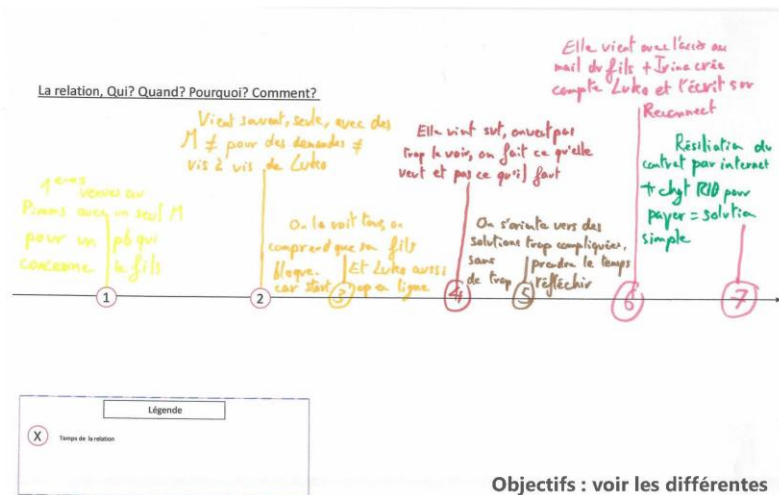 La relation, Qui? Quand? Pourquoi? Comment?
1ères venues au
Pimms avec un seul M
pour un pb qui
concerne le fils
Vient souvent, seule, avec des
M ≠ pour des demandes ≠
vis à vis de Luko
On la voit tous, on
comprend que son fils
bloque. Et Luko aussi
car start up en ligne
Elle vient svt, on veut pas
trop la voir, on fait ce qu'elle
veut et pas ce qu'il faut
On s'oriente vers des
solutions trop compliquées,
sans prendre le temps
de trop réfléchir
Elle vient avec l'accès au
mail du fils + Irina crée
compte Luko et l'écrit sur
Reconnect
Résiliation du
contrat par internet
+ chgt RIB pour
payer = solution
simple
1 2 3 4 5 6 7
Légende
X Temps de la relation
Objectifs : voir les différentes